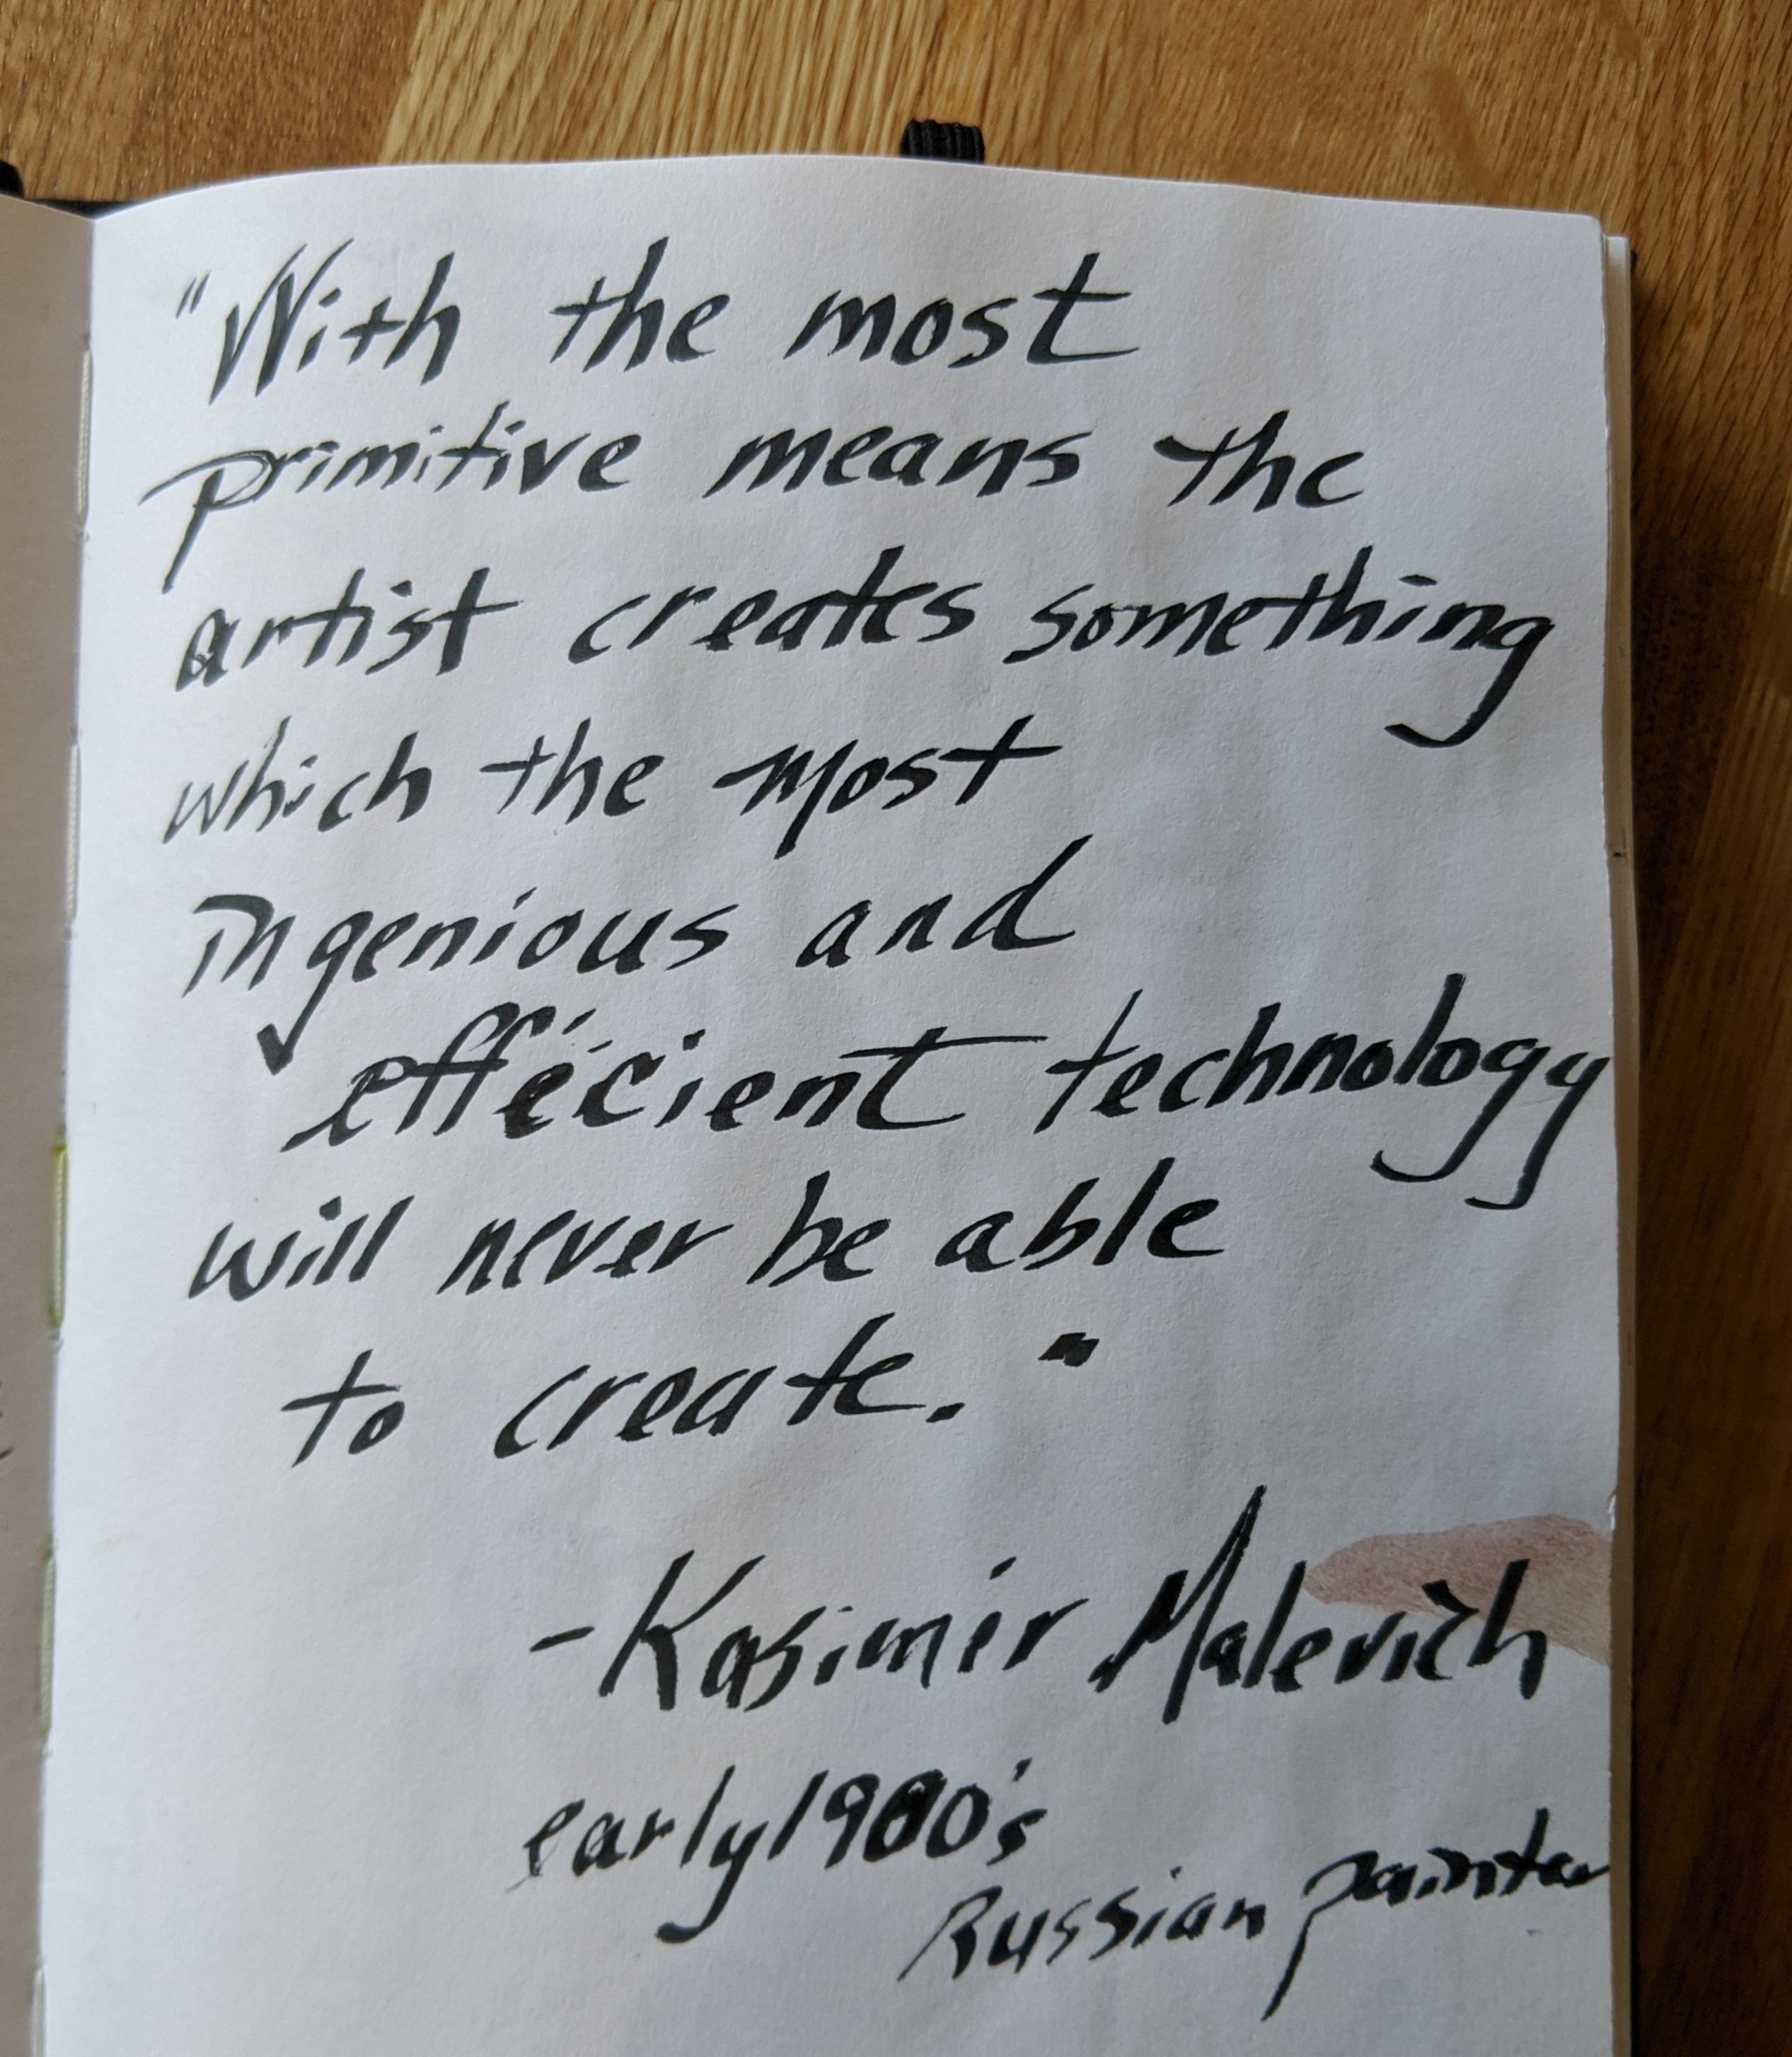 "With the most
primitive means the
artist creates something
which the most
ingenious and
efficient technology
will never be able
to create."
-Kasimir Malevich
early 1900's
Russian painter